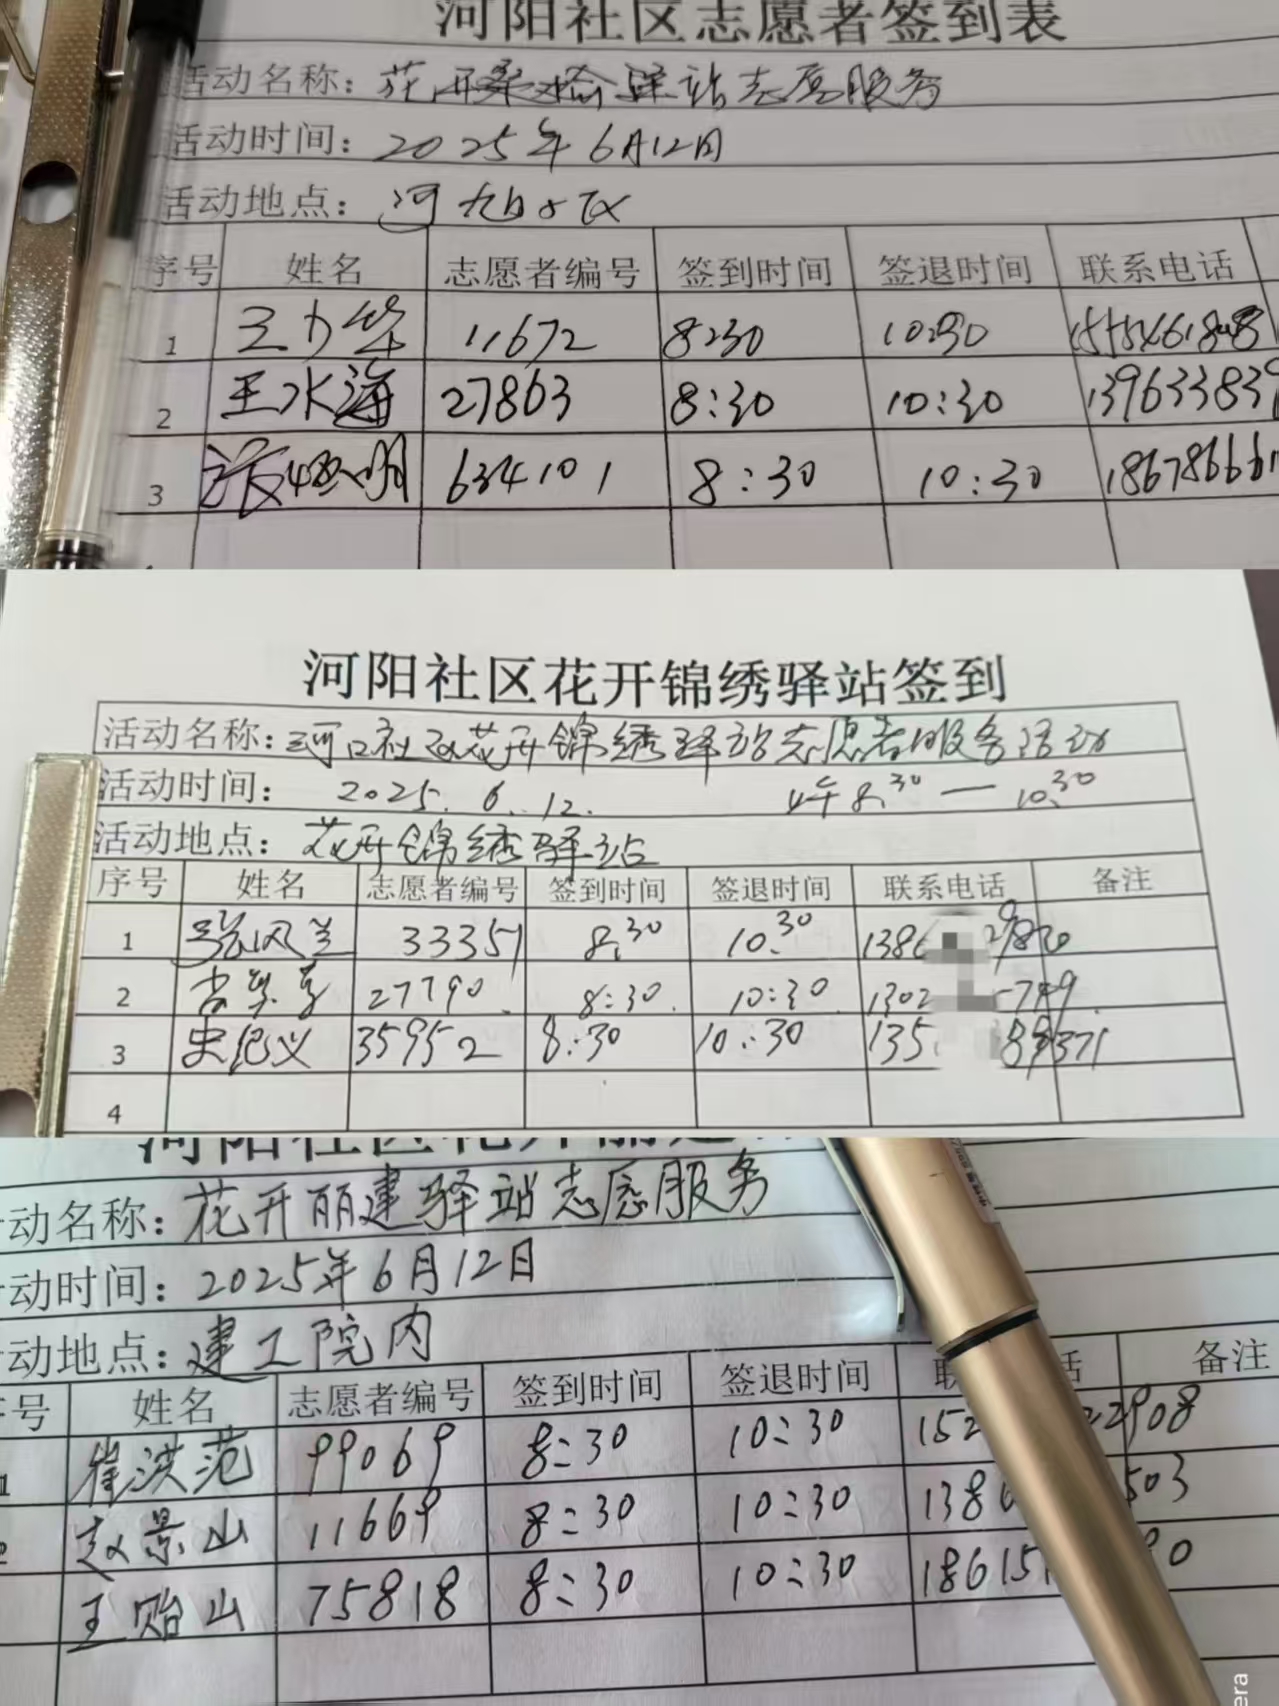 河阳社区志愿者签到表
活动名称：花开桑榆驿站志愿服务
活动时间：2025年6月12日
活动地点：河阳社区
序号 姓名 志愿者编号 签到时间 签退时间 联系电话
1 王力华 11672 8:30 10:30
2 王水海 27863 8:30 10:30 139633839
3 634101 8:30 10:30 186786661
河阳社区花开锦绣驿站签到
活动名称：河阳社区花开锦绣驿站志愿者服务活动
活动时间：2025.6.12. 上午8:30—10:30
活动地点：花开锦绣驿站
序号 姓名 志愿者编号 签到时间 签退时间 联系电话 备注
1 33351 8:30 10:30 138
2 27790 8:30 10:30 1302
3 史纪义 35952 8:30 10:30 135
4
河阳社区花开丽建
动名称：花开丽建驿站志愿服务
动时间：2025年6月12日
动地点：建工院内
号 姓名 志愿者编号 签到时间 签退时间 联 话 备注
1 崔洪范 99069 8:30 10:30 152 22908
2 赵景山 11669 8:30 10:30 138 503
王贻山 75818 8:30 10:30 18615 90
era